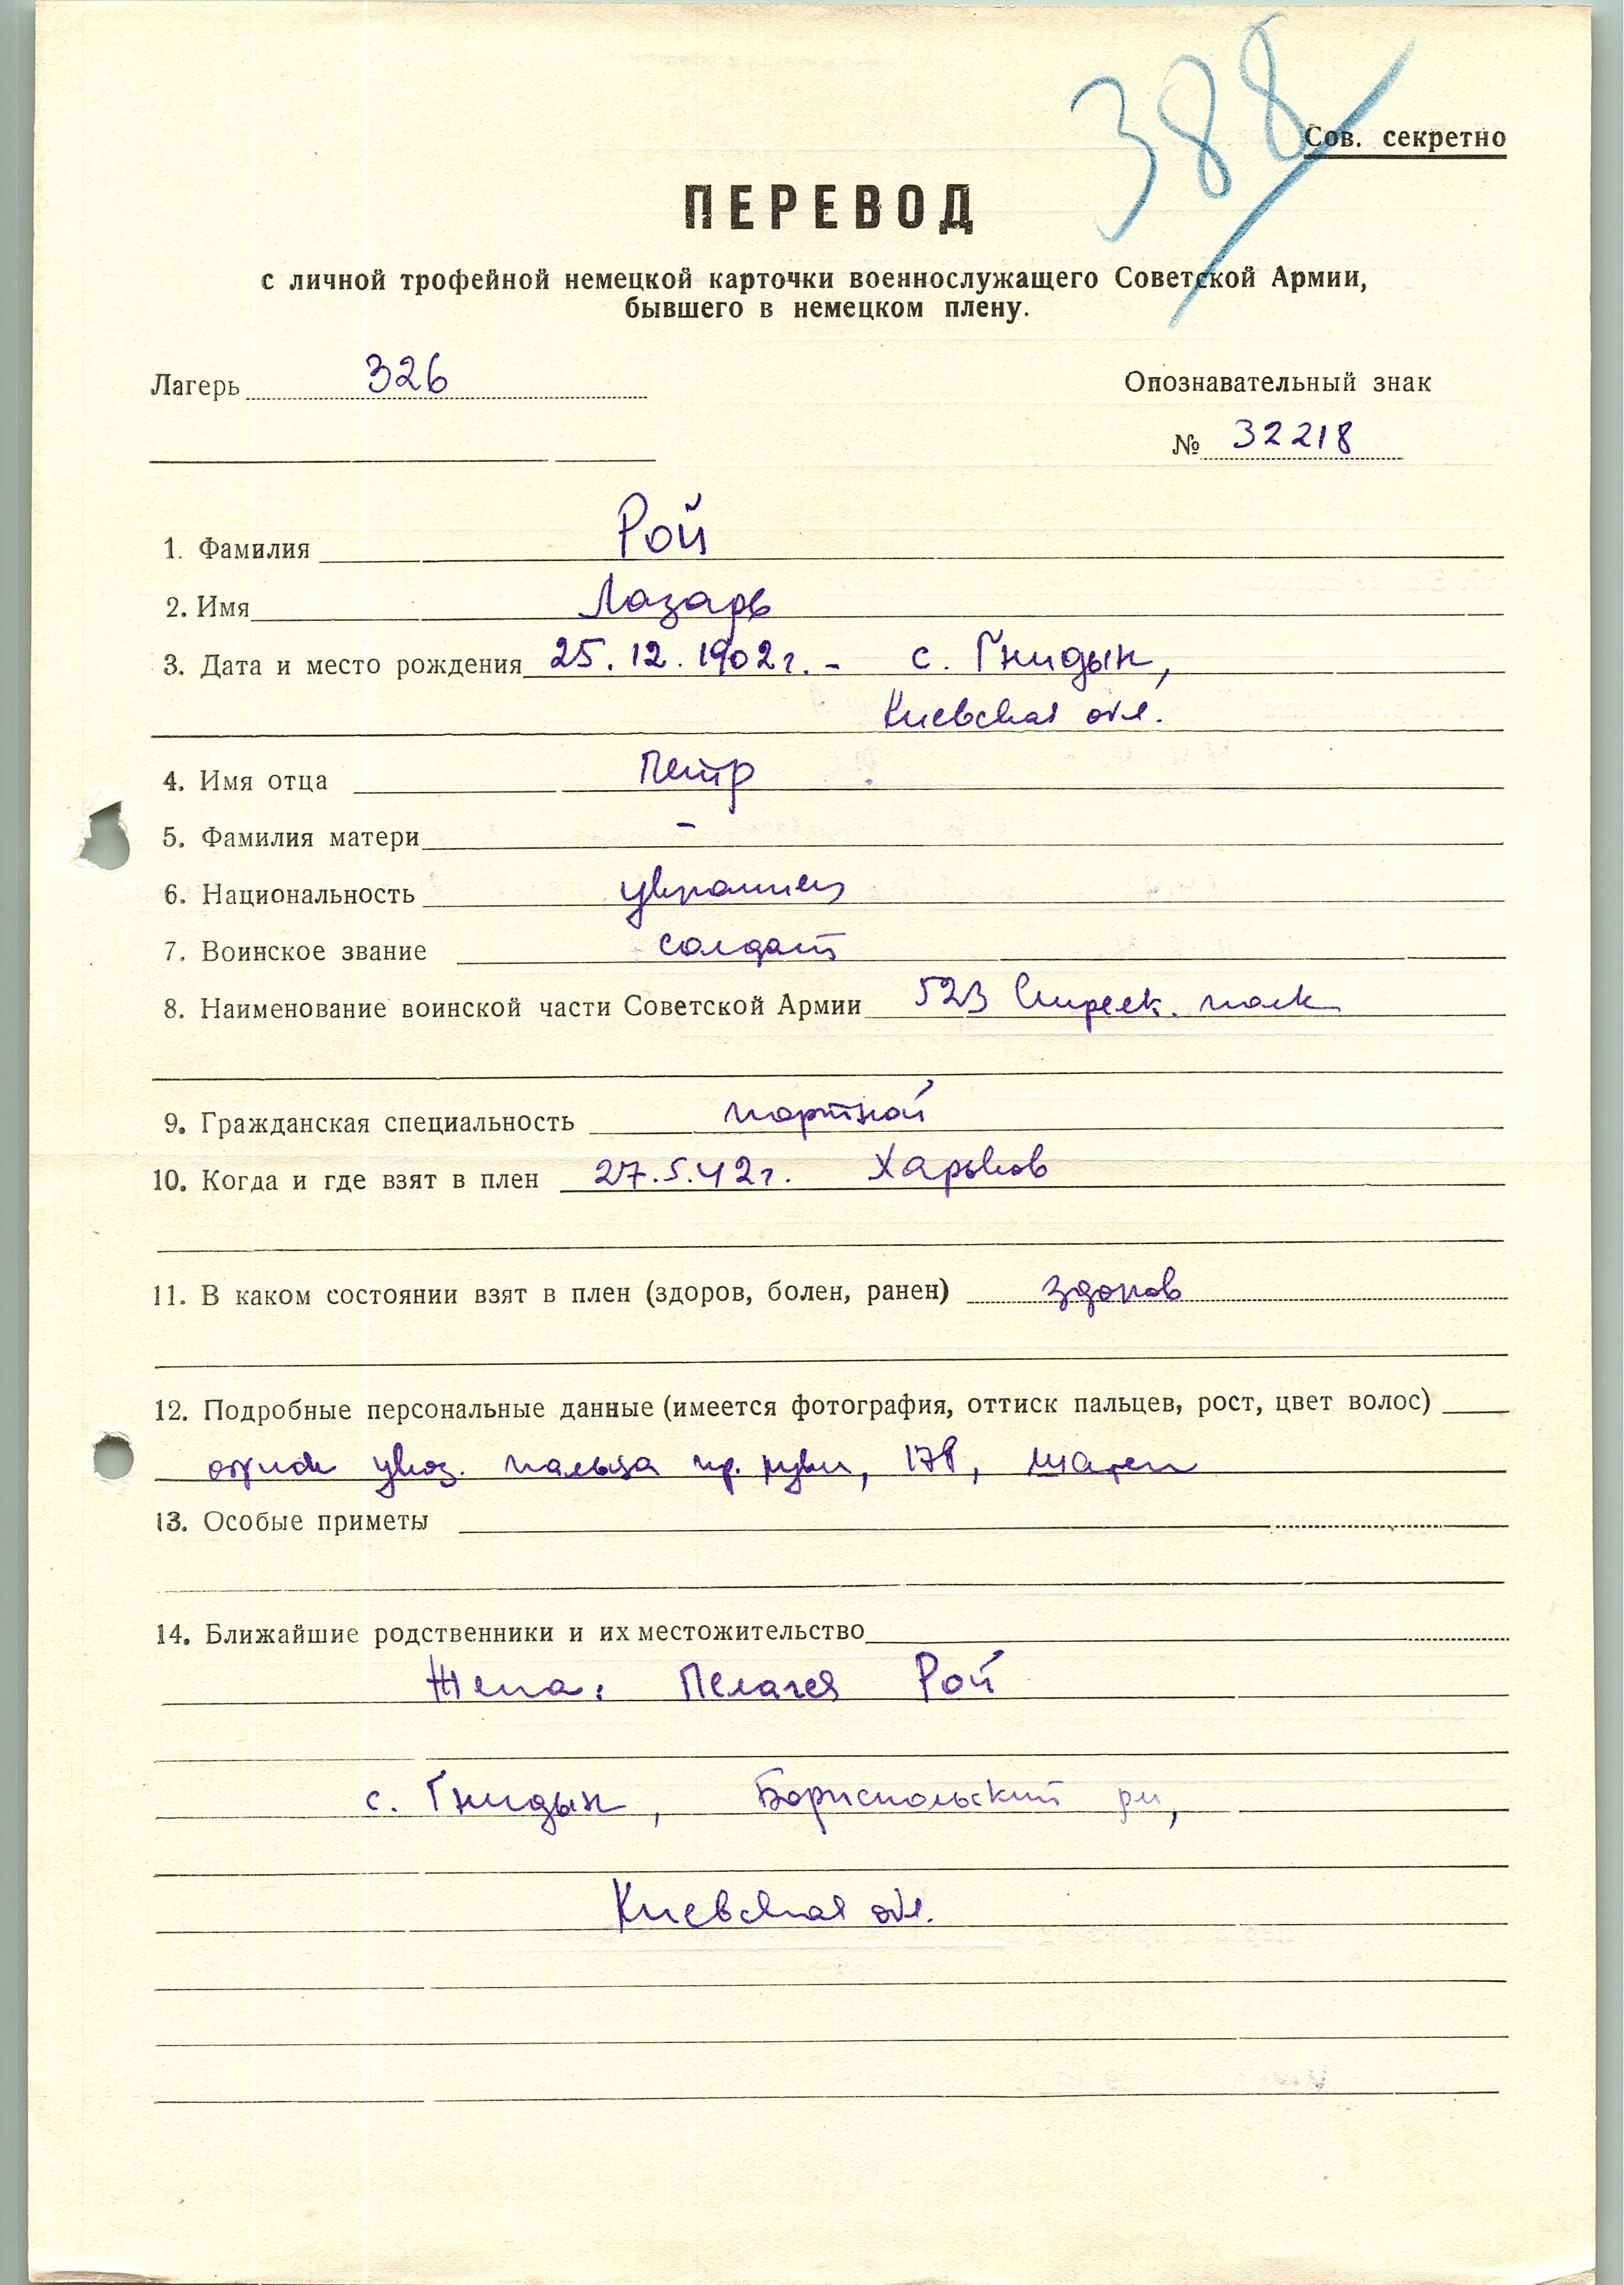 388
Сов. секретно
ПЕРЕВОД
с личной трофейной немецкой карточки военнослужащего Советской Армии,
бывшего в немецком плену.
Лагерь 326
Опознавательный знак
№ 32218
1. Фамилия Рой
2. Имя Лазарь
3. Дата и место рождения 25.12.1902г. - с. Гнидын,
Киевская обл.
4. Имя отца Петр
5. Фамилия матери -
6. Национальность украинец
7. Воинское звание солдат
8. Наименование воинской части Советской Армии 523 Стрелк. полк
9. Гражданская специальность портной
10. Когда и где взят в плен 27.5.42г. Харьков
11. В каком состоянии взят в плен (здоров, болен, ранен) здоров
12. Подробные персональные данные (имеется фотография, оттиск пальцев, рост, цвет волос)
указ. пальца пр. руки, 178, шатен
13. Особые приметы
14. Ближайшие родственники и их местожительство
Жена: Пелагея Рой
с. Гнидын, Бориспольский рн,
Киевская обл.